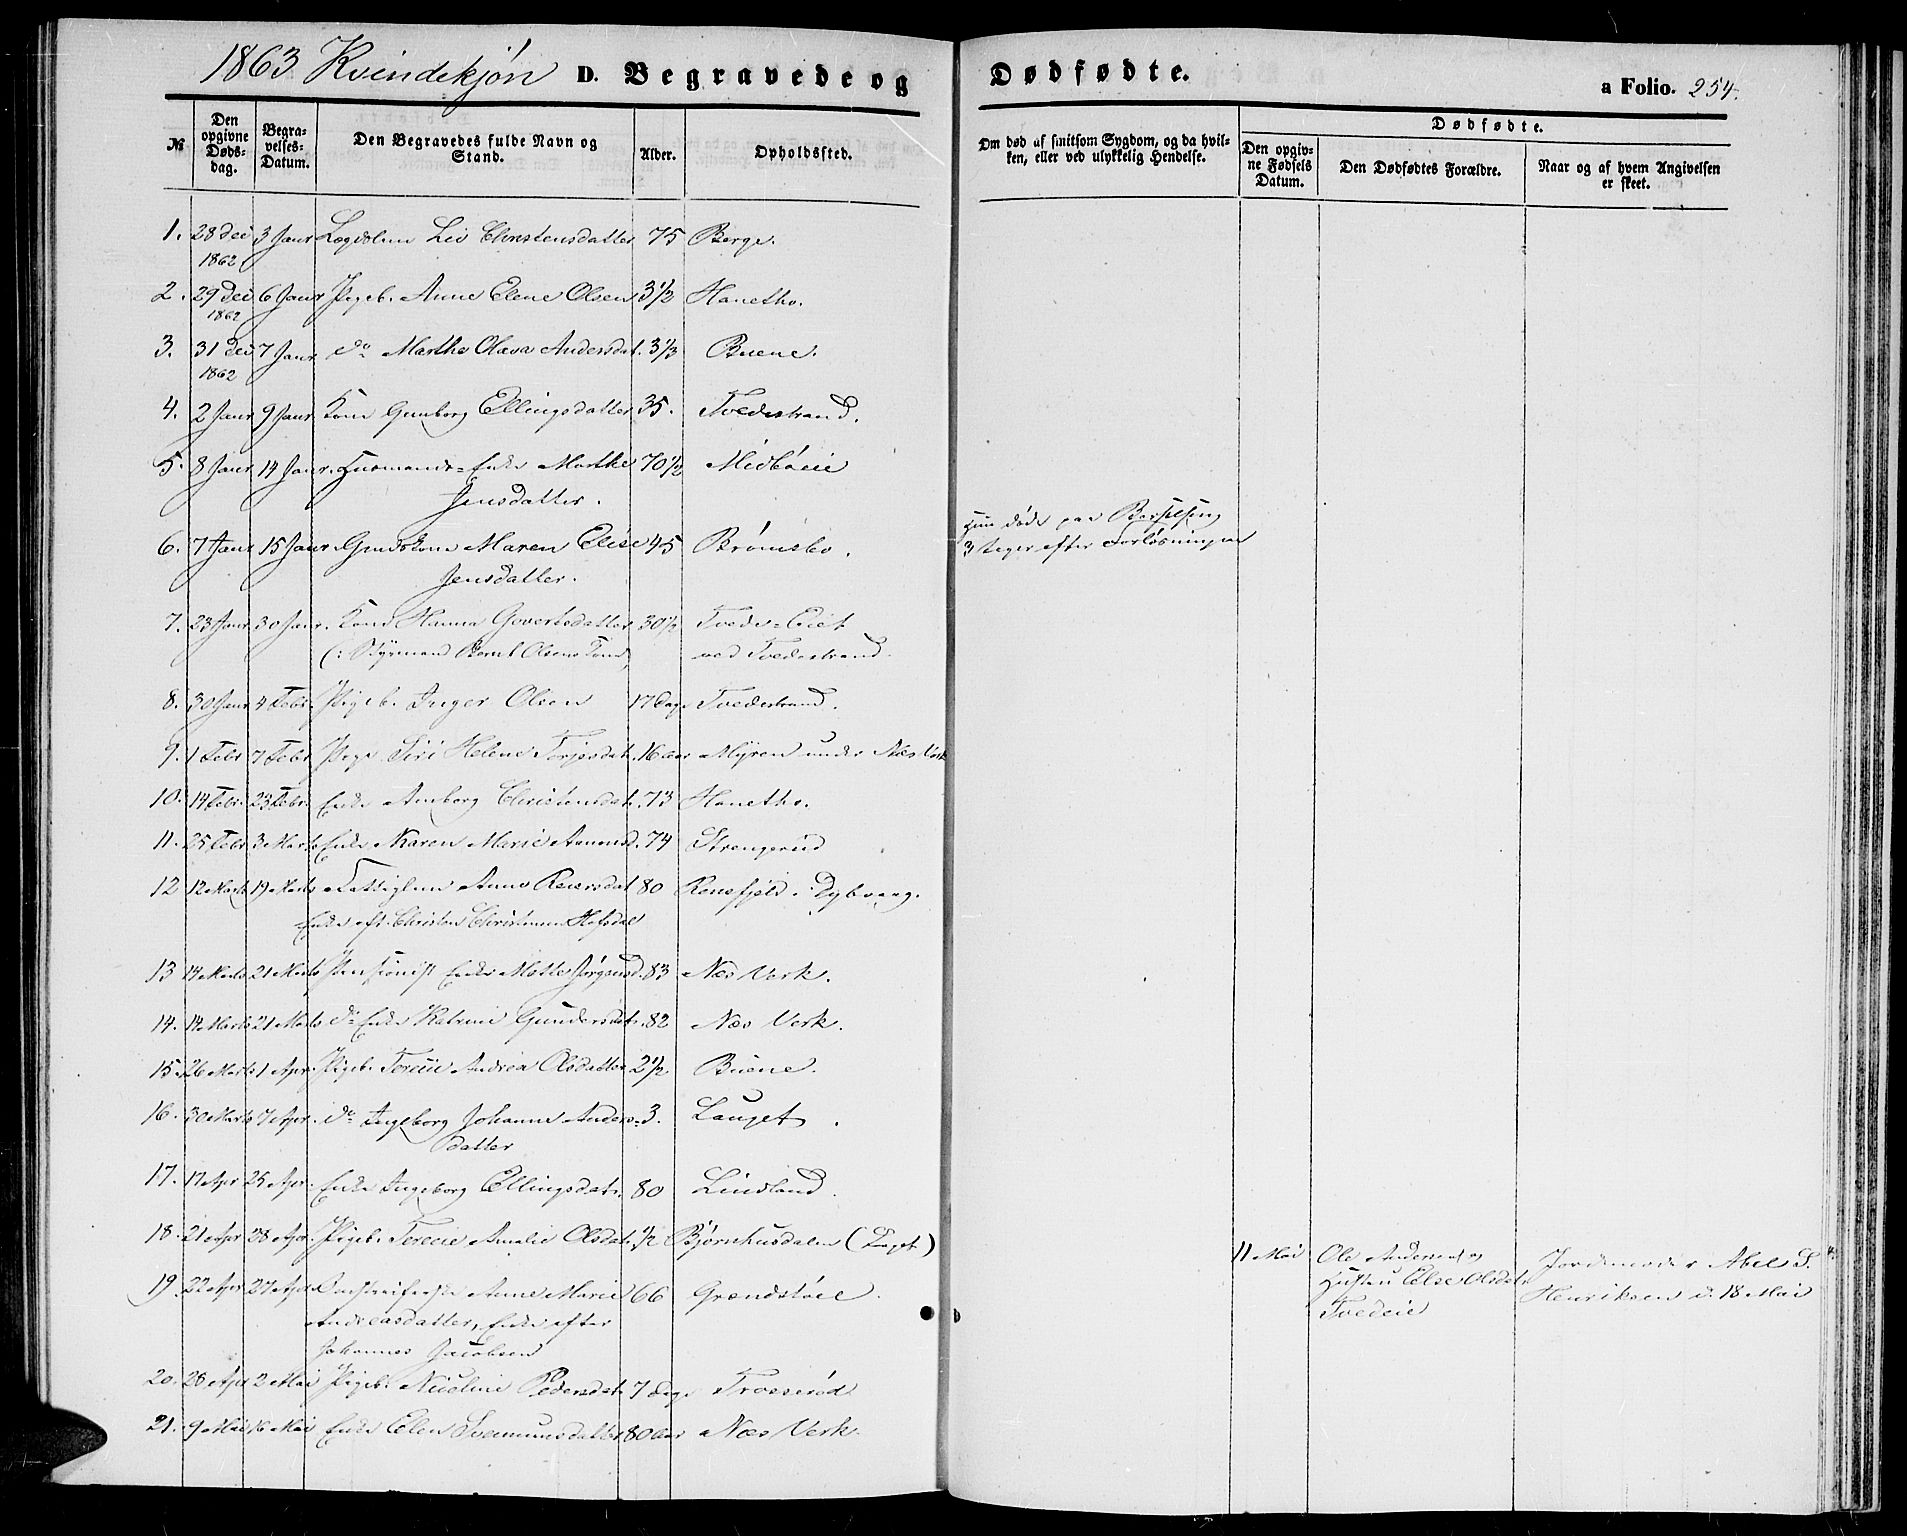 1863 Kvindekjøn D. Begravede og Dødfødte. a Folio. 254.
№ Den opgivne Døds-dag. Begra-velses-Datum. Den Begravedes fulde Navn og Stand. Alder. Opholdssted. Om død af smitsom Sygdom, og da hvil-ken, eller ved ulykkelig Hendelse. Dødfødte. Den opgiv-ne Fødsels Datum. Den Dødfødtes Forældre. Naar og af hvem Angivelsen er skeet.
1. 28 Dec 3 Janr Lægdslem Liv Christensdatter 75 Berge.
1862
2. 29 Dec 6 Janr Pigeb. Anne Elene Olsen 3½ Hanetho.
1862
3. 31 Dec 7 Janr do Marthe Olava Andersdat. 3⅓ Buene.
1862
4. 2 Janr 9 Janr Kone Gunborg Ellingsdatter 35. Tvedestrand.
5. 8 Janr 14 Janr. Husmands=Enke Marthe 70½ Midbøeie
Jensdatter.
6. 7 Janr 15 Janr Gmdskone Maren Elise 45 Brømsbo. Hun døde paa Barselseng
Jensdatter. 3 dager efter Forløsningen
7. 23 Janr 30 Janr. Kone Hanna Govertsdatter 30½ Tvede=Eiet
(: Styrmand Bernt Olsens Kone) ved Tvedestrand.
8. 30 Janr 4 Febr. Pigeb. Inger Olsen 17 Dage Tvedestrand.
9. 1 Febr 7 Febr Pige Siri Helene Torjesdat. 16 aar Myren under Næs Verk
10. 14 Febr. 23 Febr. Enke Amborg Christensdat. 73 Hanetho.
11. 25 Febr 3 Marts Enke Karen Marie Aanonsd. 74 Strengerud
12 12 Marts 19 Marts Fattiglem Anne Reiersdat 80 Ronefjeld i Dybvaag.
Enke eft. Christen Christensen Hofsdal
13 14 Marts 21 Marts Pensionist Enke Mette Jørgensd. 83 Næs Verk.
14. 14 Marts 21 Marts do Enke Katrine Gundersdat. 82 Næs Verk.
15. 26 Marts 1 Apr. Pigeb. Terese Andrea Olsdatter 2½ Buene.
16. 30 Marts 7 Apr. do Ingeborg Johanne Anders- 3. Lauget.
datter
17. 17 Apr 25 Apr. Enke Ingeborg Ellingsdat. 80 Lindland.
18. 21 Apr 28 Apr. Pigeb. Terese Amalie Olsdat. ½ Bjørnhusdalen (Laget)
11 Mai Ole Andersen og Jordemoder Abel S.
Hustru Else Olsdat. Henriksen d. 18 Mai
Tvedeie
19. 22 Apr 27 Apr Anne Marie 66 Grændstøie.
Andreasdatter, Enke efter
Johannes Jacobsen
20. 28 Apr 2 Mai Pigeb. Nicoline Pedersdat. 7 Dage Trosserød
21. 9 Mai 16 Mai Enke Elen Svenunusdatter 80 aar Næs Verk.